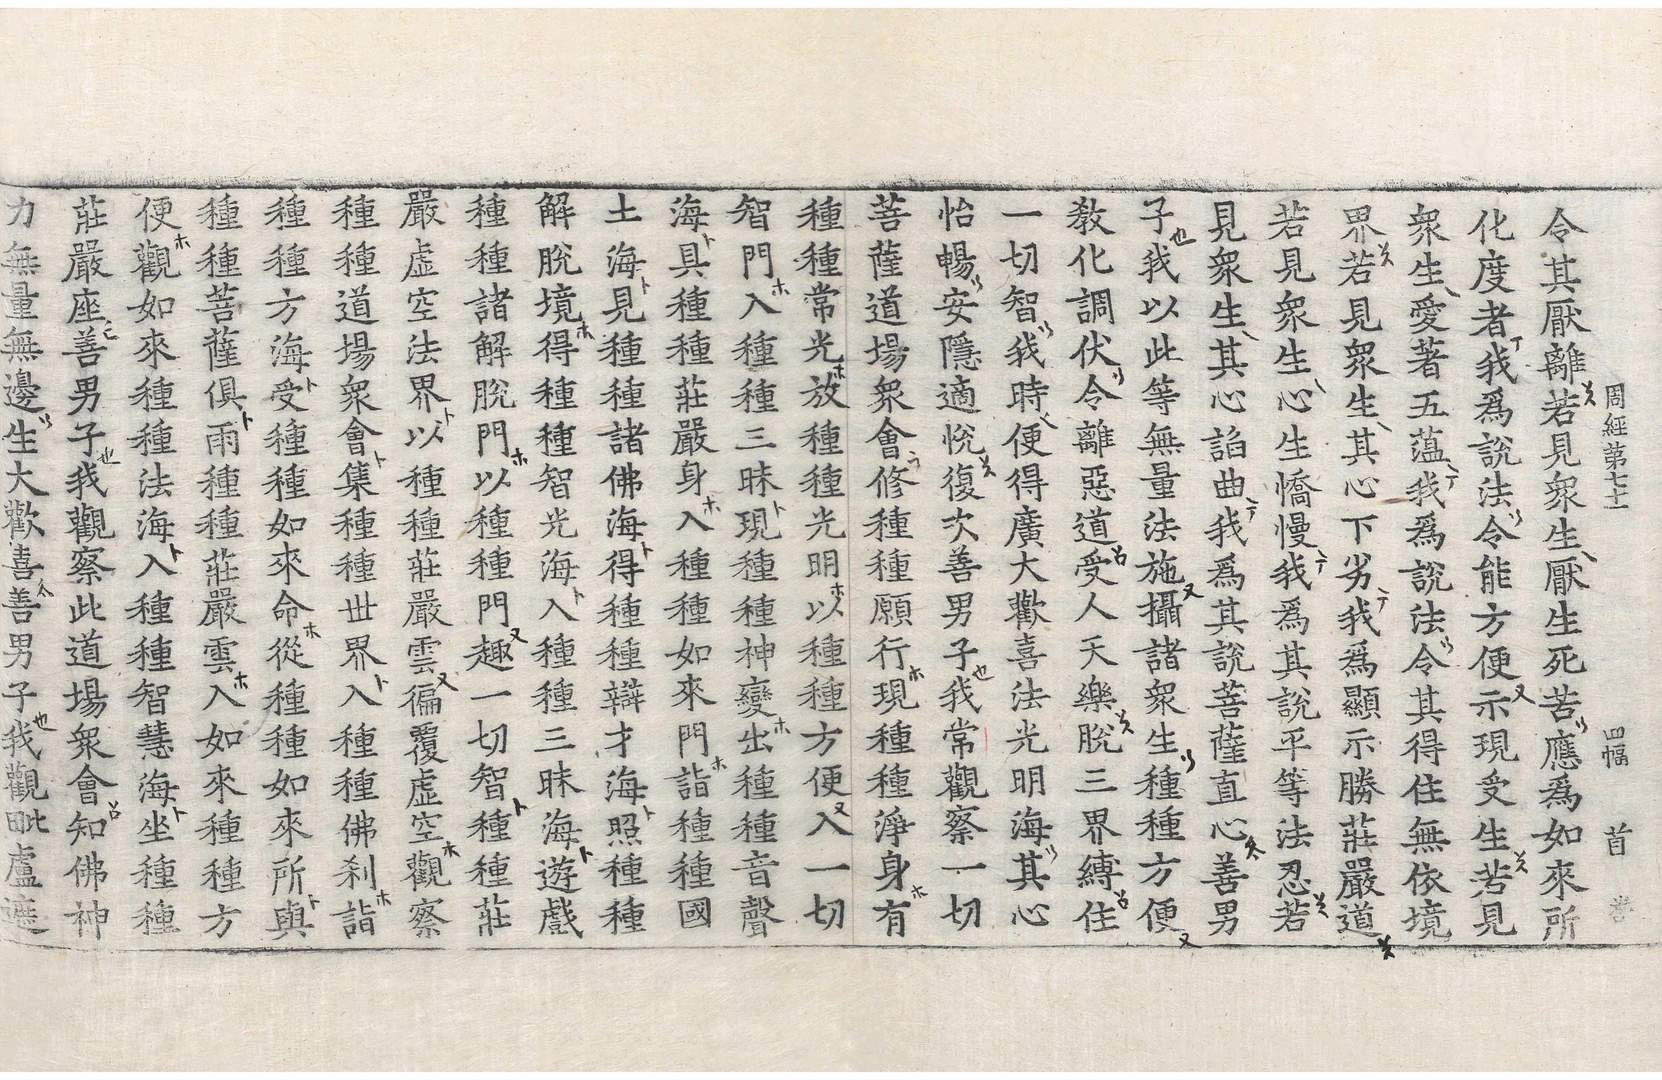 周經第七十一 四幅 首
令其厭離若見衆生厭生死苦應爲如來所
化度者我爲說法令能方便示現受生若見
衆生愛著五蘊我爲說法令其得住無依境
界若見衆生其心下劣我爲顯示勝莊嚴道
若見衆生心生憍慢我爲其說平等法忍若
見衆生其心諂曲我爲其說菩薩直心善男
子我以此等無量法施攝諸衆生種種方便
敎化調伏令離惡道受人天樂脫三界縛住
一切智我時便得廣大歡喜法光明海其心
怡暢安隱適悅復次善男子我常觀察一切
菩薩道場衆會修種種願行現種種淨身有
種種常光放種種光明以種種方便入一切
智門入種種三昧現種種神變出種種音聲
海具種種莊嚴身入種種如來門詣種種國
土海見種種諸佛海得種種辯才海照種種
解脫境得種種智光海入種種三昧海遊戲
種種諸解脫門以種種門趣一切智種種莊
嚴虛空法界以種種莊嚴雲徧覆虛空觀察
種種道場衆會集種種世界入種種佛刹詣
種種方海受種種如來命從種種如來所與
種種菩薩俱雨種種莊嚴雲入如來種種方
便觀如來種種法海入種種智慧海坐種種
莊嚴座善男子我觀察此道場衆會知佛神
力無量無邊生大歡喜善男子我觀毗盧遮